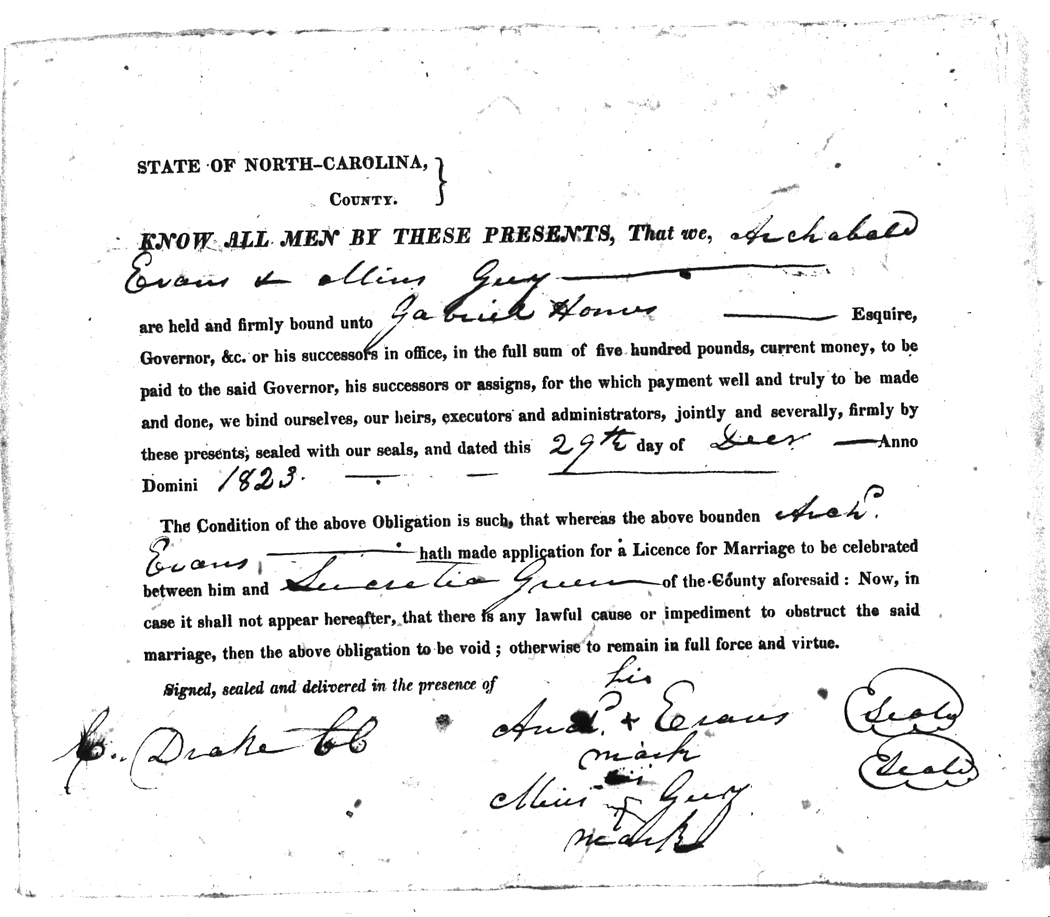 STATE OF NORTH-CAROLINA, }
COUNTY.
KNOW ALL MEN BY THESE PRESENTS, That we, Archabald
Evans & Mins Guy
are held and firmly bound unto Gabriel Homes Esquire,
Governor, &c. or his successors in office, in the full sum of five hundred pounds, current money, to be
paid to the said Governor, his successors or assigns, for the which payment well and truly to be made
and done, we bind ourselves, our heirs, executors and administrators, jointly and severally, firmly by
these presents; sealed with our seals, and dated this 29th day of Decr — Anno
Domini 1823.
The Condition of the above Obligation is such, that whereas the above bounden Archd.
Evans hath made application for a Licence for Marriage to be celebrated
between him and Lucretia Green of the County aforesaid: Now, in
case it shall not appear hereafter, that there is any lawful cause or impediment to obstruct the said
marriage, then the above obligation to be void; otherwise to remain in full force and virtue.
Signed, sealed and delivered in the presence of
his
Archd. + Evans (Seal)
mark
Drake CC
his
Mins Guy (Seal)
mark